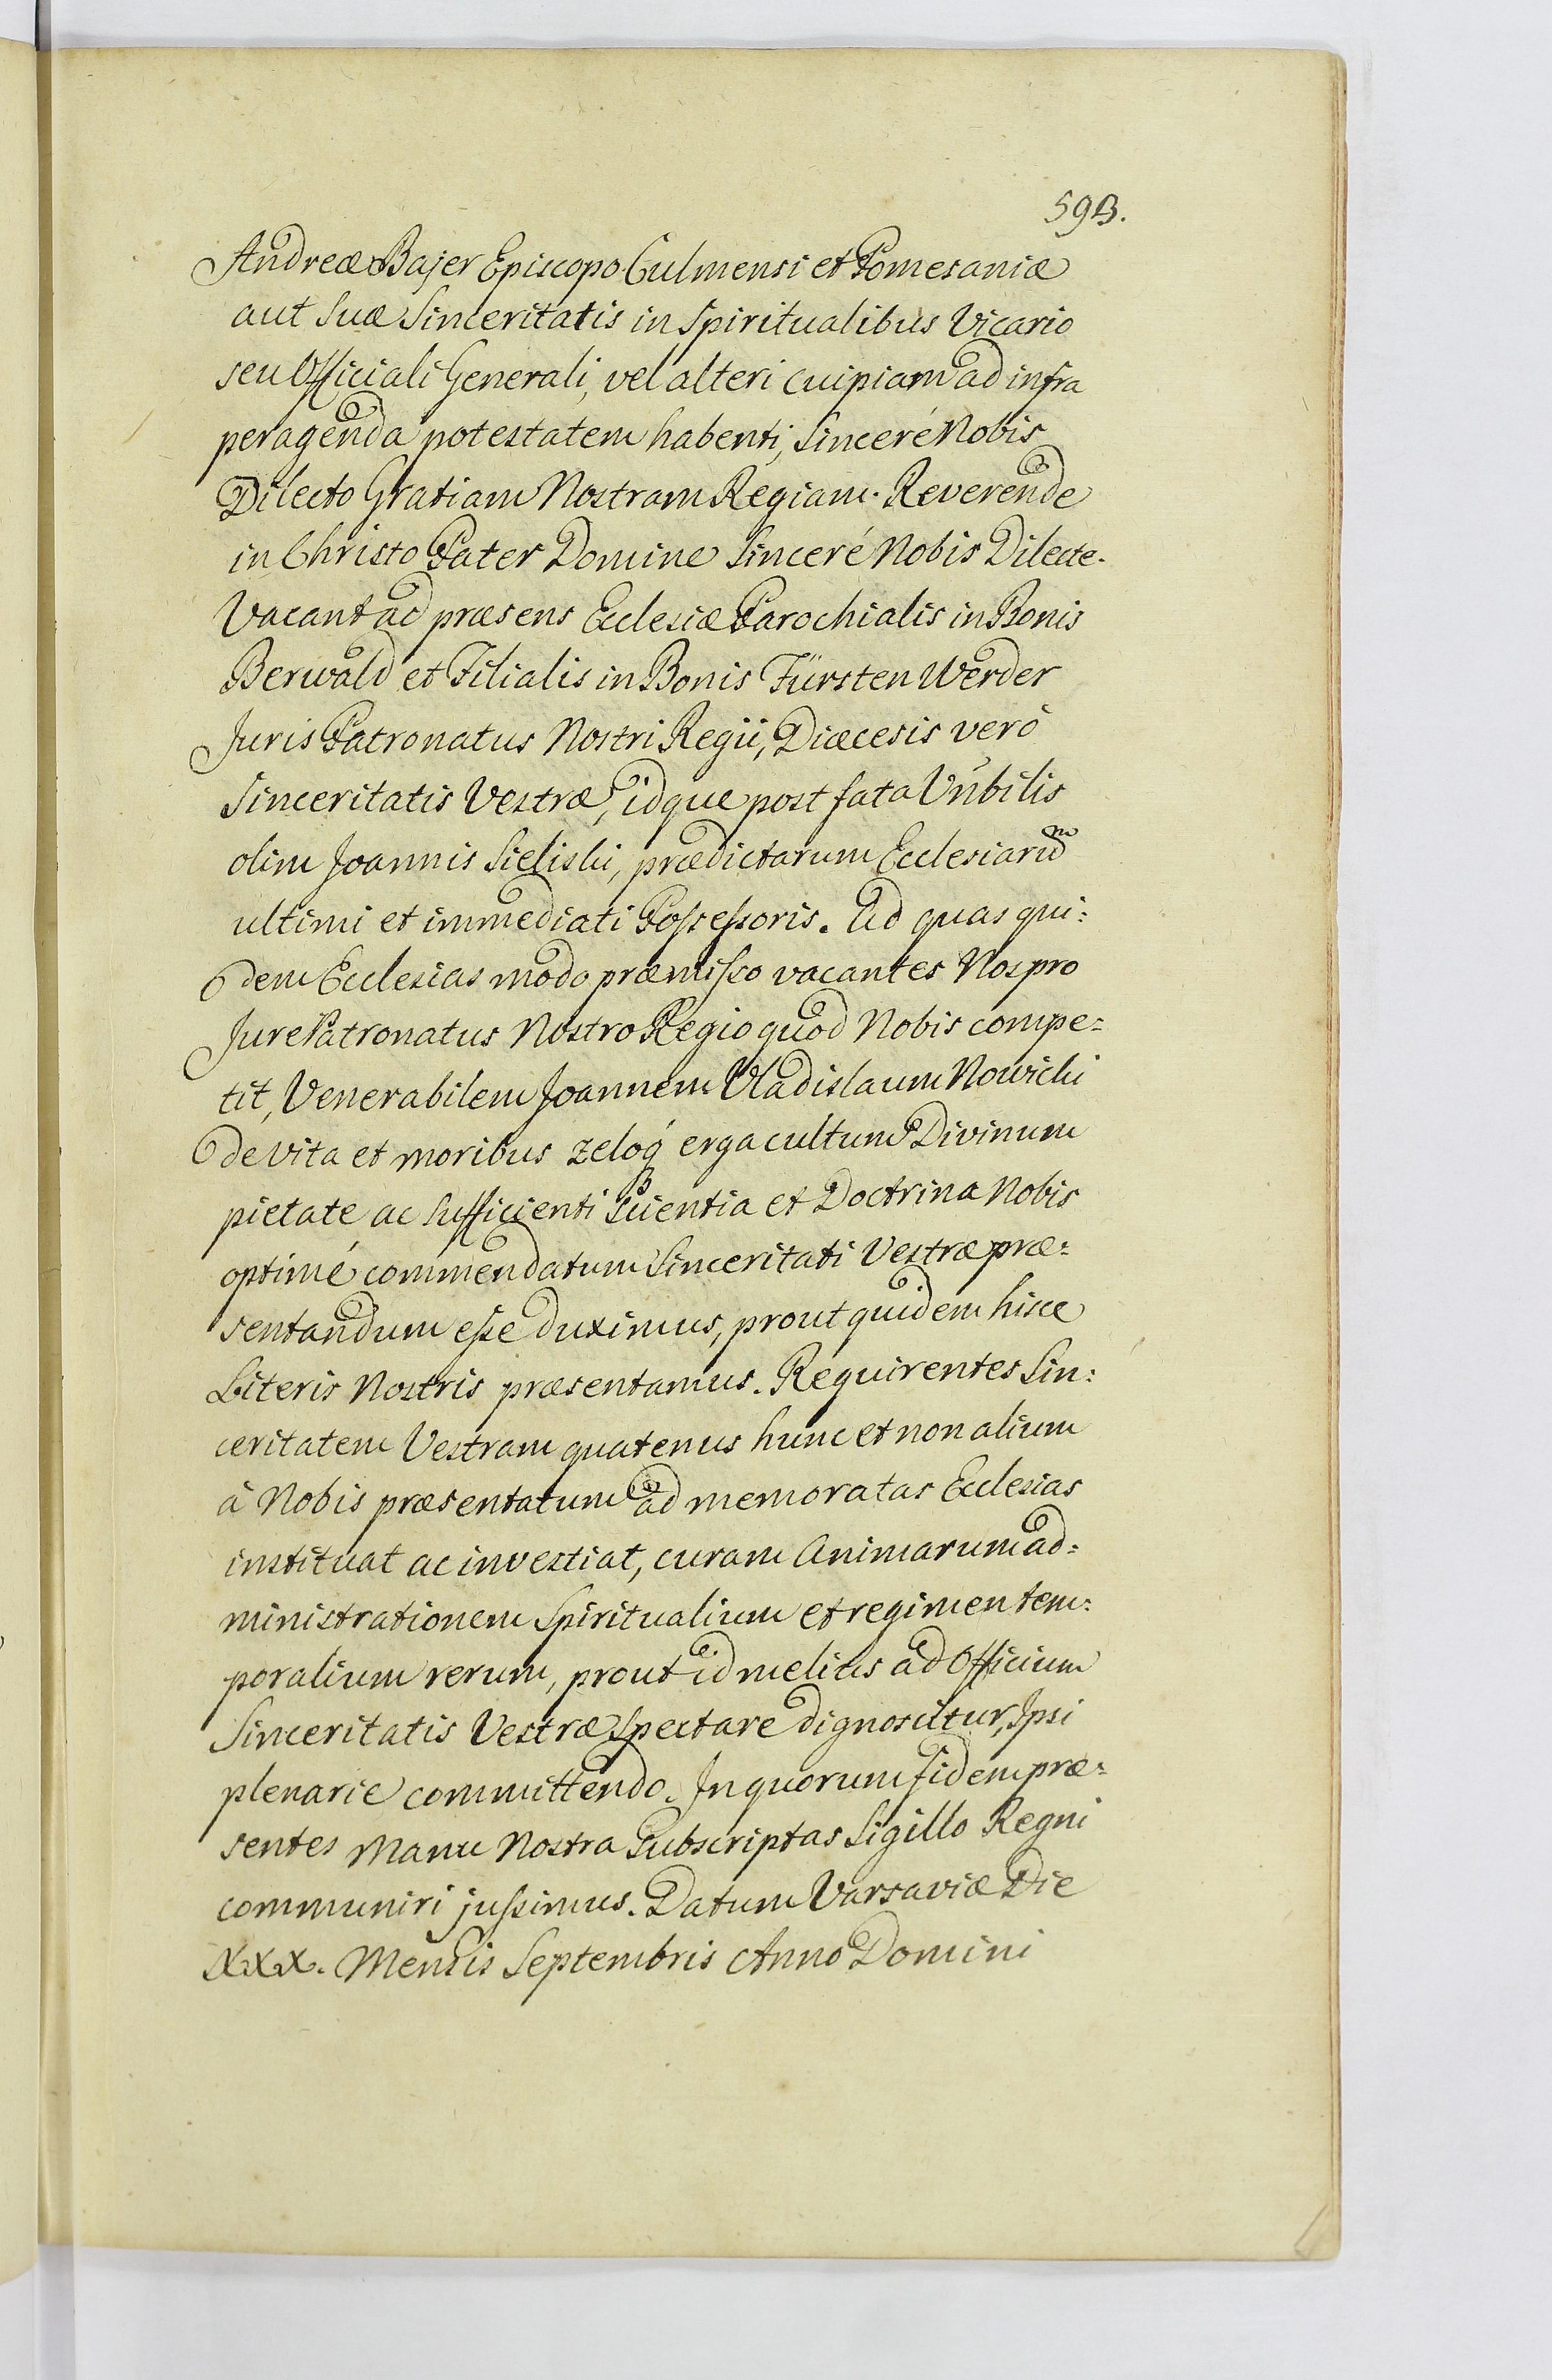 593.
Andreæ Bajer Episcopo Culmensi et Pomesaniæ
aut suæ Sinceritatis in Spiritualibus Vicario
seu Officiali Generali, vel alteri cuipiam ad infra
peragenda potestatem habenti, Sinceré Nobis
Dilecto Gratiam Nostram Regiam. Reverende
in Christo Pater Domine Sinceré Nobis Dilecte.
Vacant ad præsens Ecclesiæ Parochialis in Bonis
Berwald et Filialis in Bonis Fürsten Werder
Juris Patronatus Nostri Regii, Diæcesis veró
Sinceritatis Vestræ, idque post fata Vnbilis
olim Joannis Sielski, prædictarum Ecclesiarum
ultimi et immediati Possessoris. Ad quas qui:
dem Ecclesias modo præmisso vacantes Nos pro
Jure Patronatus Nostro Regio quod Nobis compe:
tit, Venerabilem Joannem Vladislaum Nowicki
de vita et moribus zeloq́ erga cultum Divinum
pietate ac sufficienti Scientia et Doctrina Nobis
optimé commendatum Sinceritati Vestræ præ:
sentandum esse duximus, prout quidem hisce
Literis Nostris præsentamus. Requirentes Sin:
ceritatem Vestram quatenus hunc et non alium
à Nobis præsentatum ad memoratas Ecclesias
instituat ac investiat, curam Animarum ad:
ministrationem Spiritualium et regimen tem:
poralium rerum, prout id melius ad Officium
Sinceritatis Vestræ spectare dignoscitur, Ipsi
plenarie committendo. In quorum fidem præ:
sentes Manu Nostra Subscriptas Sigillo Regni
communiri jussimus. Datum Varsaviæ Die
XXX. Mensis Septembris Anno Domini